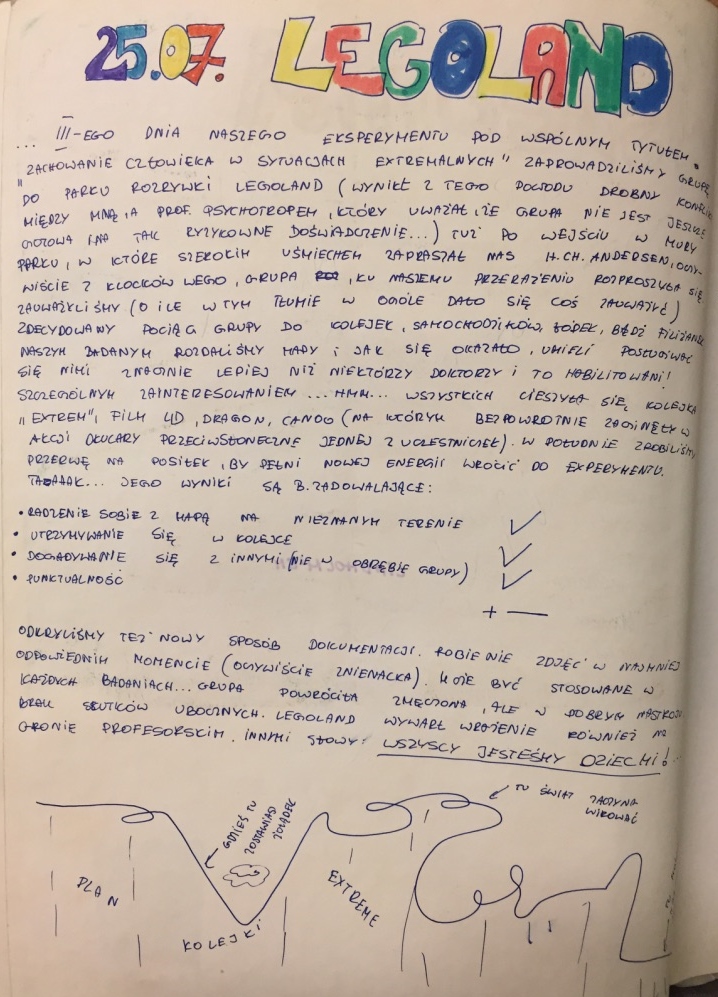 25.07. LEGOLAND
... III-EGO DNIA NASZEGO EKSPERYMENTU POD WSPÓLNYM TYTUŁEM
"ZACHOWANIE CZŁOWIEKA W SYTUACJACH EXTREMALNYCH" ZAPROWADZILIŚMY GRUPĘ
DO PARKU ROZRYWKI LEGOLAND (WYNIKŁ Z TEGO POWODU DROBNY KONFLIKT
MIĘDZY MNĄ, A PROF. PSYCHOTROPEM, KTÓRY UWAŻAŁ, ŻE GRUPA NIE JEST JESZCZE
GOTOWA NA TAK RYZYKOWNE DOŚWIADCZENIE...) TUŻ PO WEJŚCIU W MURY
PARKU, W KTÓRE SZEROKIM UŚMIECHEM ZAPRASZAŁ NAS H.CH. ANDERSEN, OCZY-
WIŚCIE Z KLOCKÓW LEGO, GRUPA, KU NASZEMU PRZERAŻENIU ROZPROSZYŁA SIĘ.
ZAUWAŻYLIŚMY (O ILE W TYM TŁUMIE W OGÓLE DAŁO SIĘ COŚ ZAUWAŻYĆ)
ZDECYDOWANY POCIĄG GRUPY DO KOLEJEK, SAMOCHODZIKÓW, ŁÓDEK, BĄDŹ FILIŻANEK
NASZYM BADANYM ROZDALIŚMY MAPY I JAK SIĘ OKAZAŁO, UMIELI POSŁUGIWAĆ
SIĘ NIMI ZNACZNIE LEPIEJ NIŻ NIEKTÓRZY DOKTORZY I TO HABILITOWANI!
SZCZEGÓLNYM ZAINTERESOWANIEM ... HMM... WSZYSTKICH CIESZYŁA SIĘ KOLEJKA
"EXTREM", FILM 4D, DRAGON, CANOO (NA KTÓRYM BEZPOWROTNIE ZAGINĘŁY W
AKCJI OKULARY PRZECIWSŁONECZNE JEDNEJ Z UCZESTNICZEK). W POŁUDNIE ZROBILIŚMY
PRZERWĘ NA POSIŁEK, BY PEŁNI NOWEJ ENERGII WRÓCIĆ DO EXPERYMENTU.
TAAAAK... JEGO WYNIKI SĄ B. ZADOWALAJĄCE:
• RADZENIE SOBIE Z MAPĄ NA NIEZNANYM TERENIE ✓
• UTRZYMYWANIE SIĘ W KOLEJCE ✓
• DOGADYWANIE SIĘ Z INNYMI (NIE W OBRĘBIE GRUPY) ✓
• PUNKTUALNOŚĆ + —
ODKRYLIŚMY TEŻ NOWY SPOSÓB DOKUMENTACJI. ROBIENIE ZDJĘĆ W NAJMNIEJ
ODPOWIEDNIM MOMENCIE (OCZYWIŚCIE ZNIENACKA). MOŻE BYĆ STOSOWANE W
KAŻDYCH BADANIACH... GRUPA POWRÓCIŁA ZMĘCZONA, ALE W DOBRYM NASTROJU
BRAK SKUTKÓW UBOCZNYCH. LEGOLAND WYWARŁ WRAŻENIE RÓWNIEŻ NA
GRONIE PROFESORSKIM. INNYMI SŁOWY: WSZYSCY JESTEŚMY DZIEĆMI!
TU ŚWIAT ZACZYNA
WIROWAĆ
GDZIEŚ TU
ZOSTAWIASZ
ŻOŁĄDEK
PLAN
KOLEJKI
EXTREME